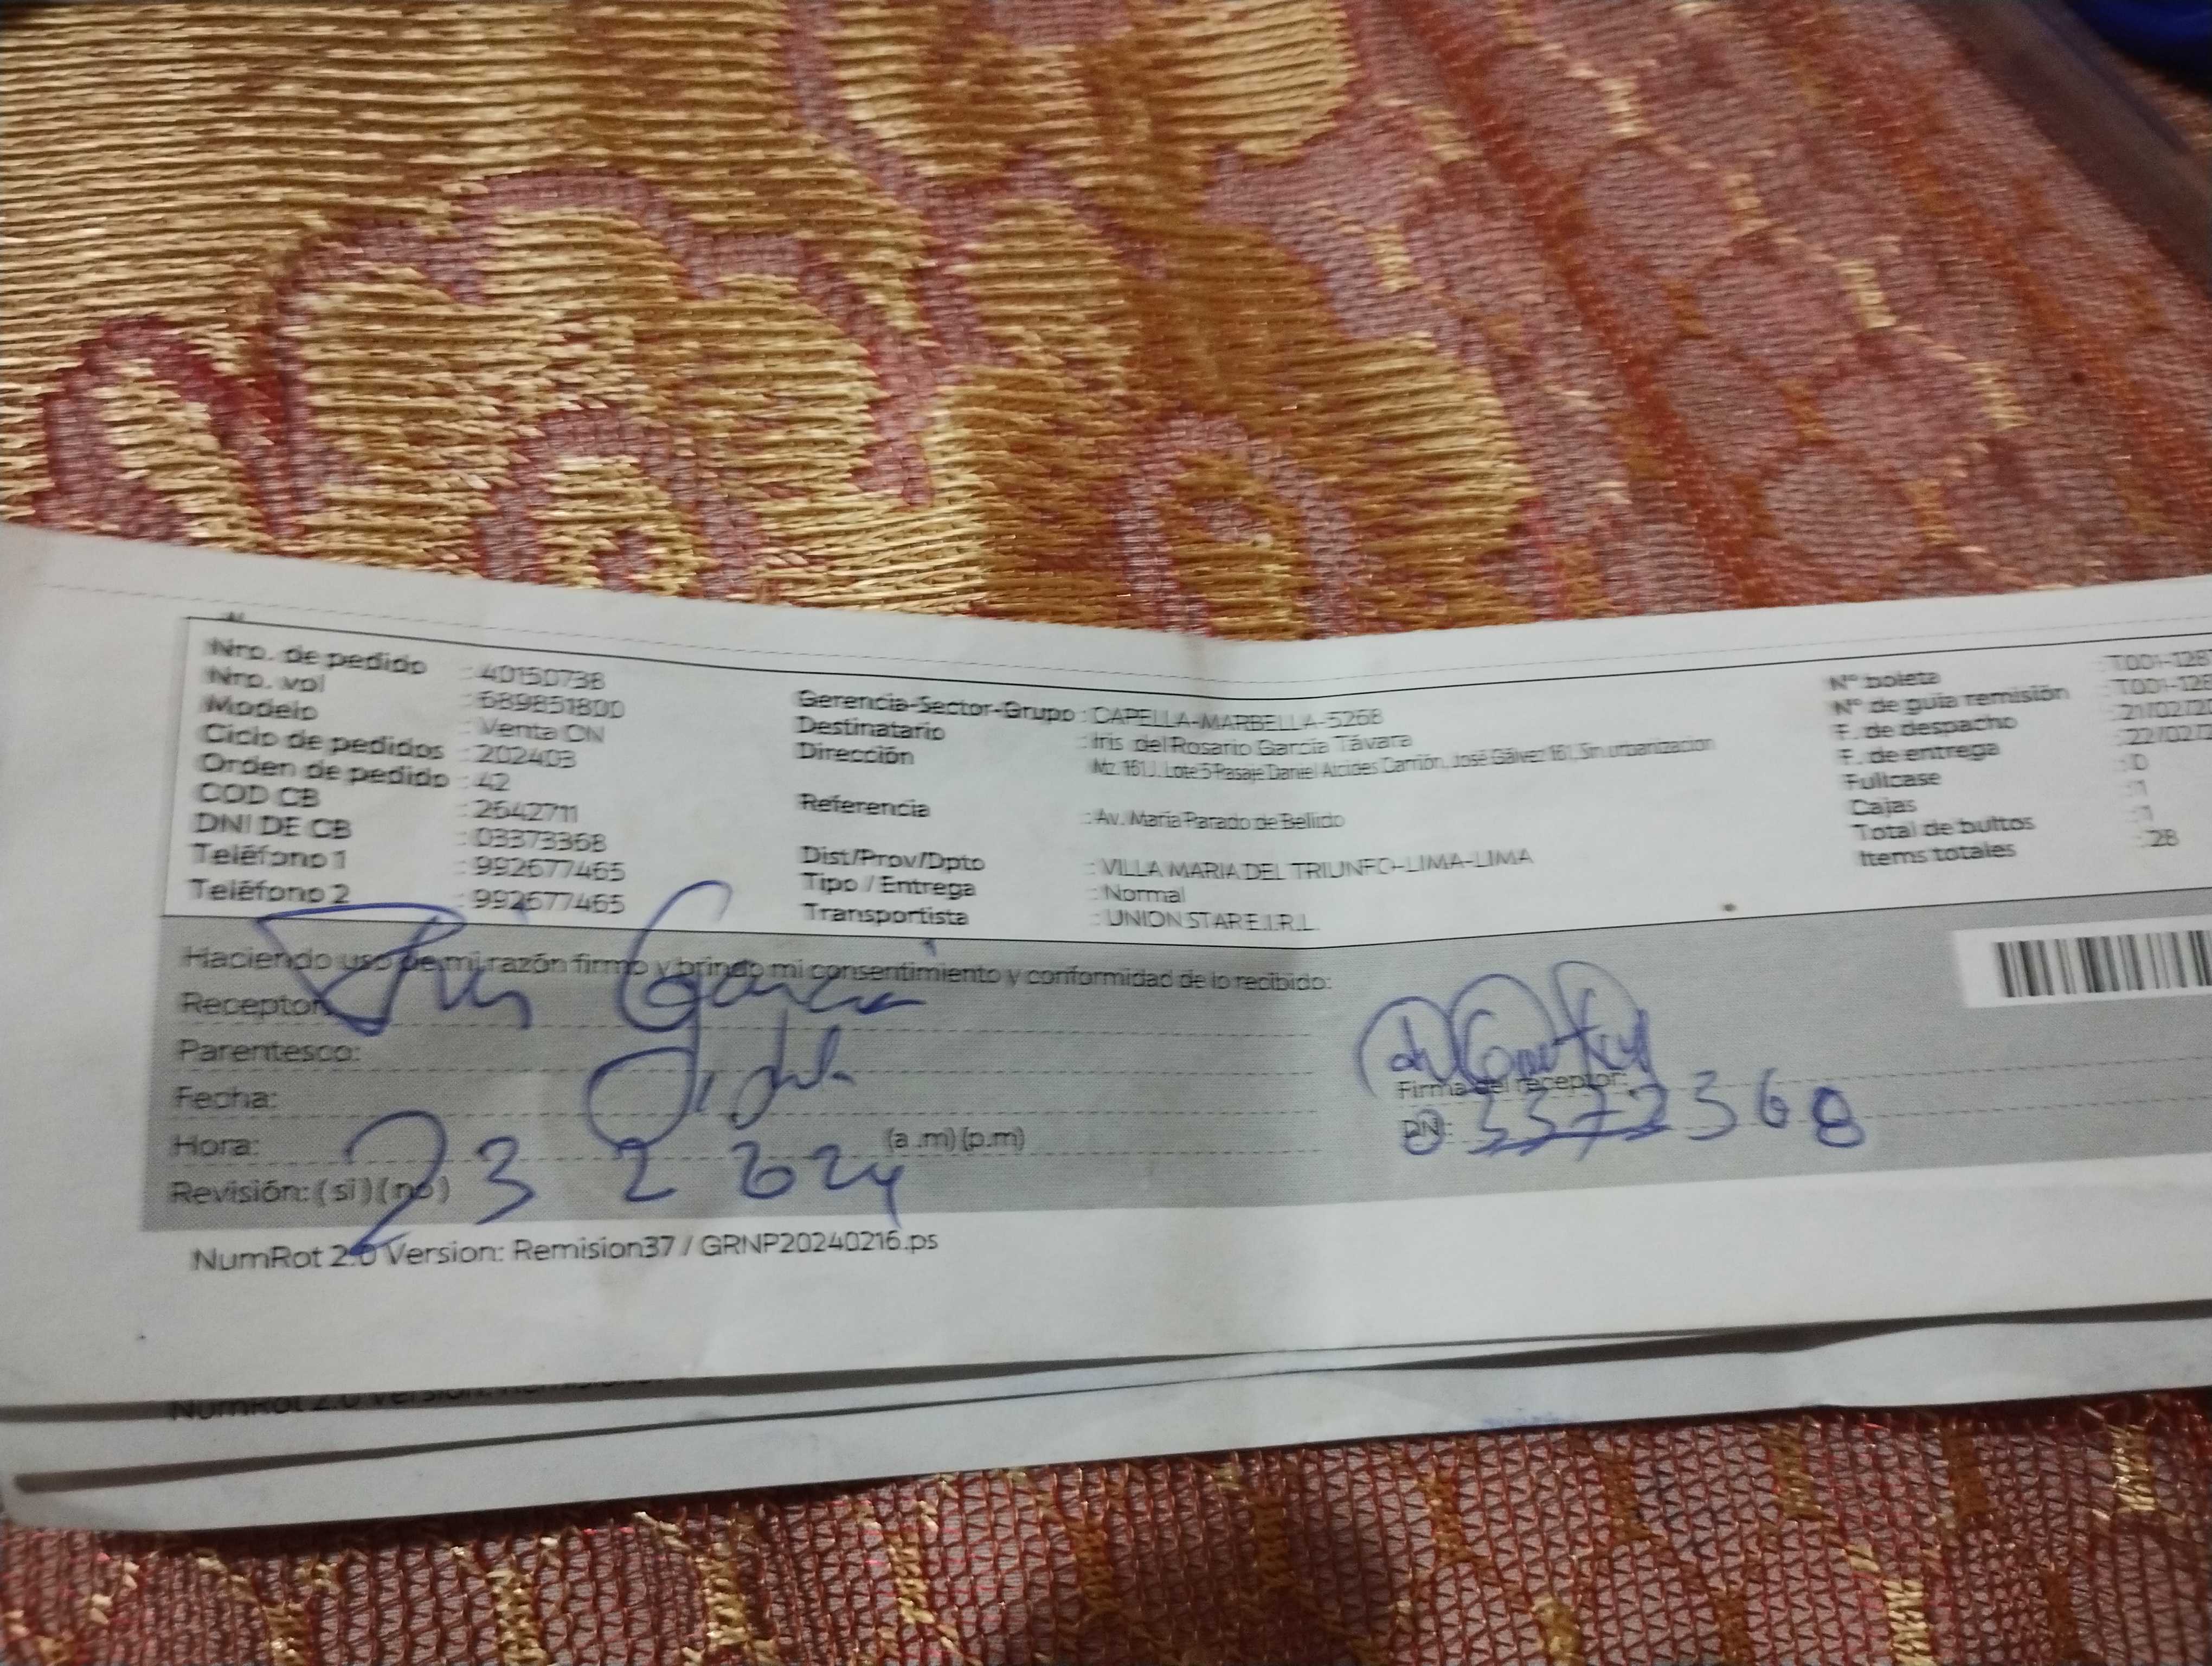 Nro. de pedido : 40150738
Nro. vol : 689851800
Modelo : Venta CN
Ciclo de pedidos : 202403
Orden de pedido : 42
COD CB : 2642711
DNI DE CB : 03373368
Teléfono 1 : 992677465
Teléfono 2 : 992677465
Gerencia-Sector-Grupo : CAPELLA-MARBELLA-5268
Destinatario : Iris del Rosario García Távara
Dirección : Mz. 161 J. Lote 5 Pasaje Daniel Alcides Carrión, José Gálvez 161, Sin urbanizacion
Referencia : Av. María Parado de Bellido
Dist/Prov/Dpto : VILLA MARIA DEL TRIUNFO-LIMA-LIMA
Tipo / Entrega : Normal
Transportista : UNION STAR E.I.R.L.
N° boleta : T001-128
N° de guía remisión : T001-128
F. de despacho : 21/02/20
F. de entrega : 22/02/2
Fullcase : 0
Cajas : 1
Total de bultos : 1
Items totales : 28
Haciendo uso de mi razón firmo y brindo mi consentimiento y conformidad de lo recibido:
Receptor: Iris García
Parentesco:
Fecha:
Hora: (a.m) (p.m)
Revisión: ( si ) ( no )
23 2 2024
Firma del receptor:
DNI: 03373368
NumRot 2.0 Version: Remision37 / GRNP20240216.ps
NumRot 2.0 Version: